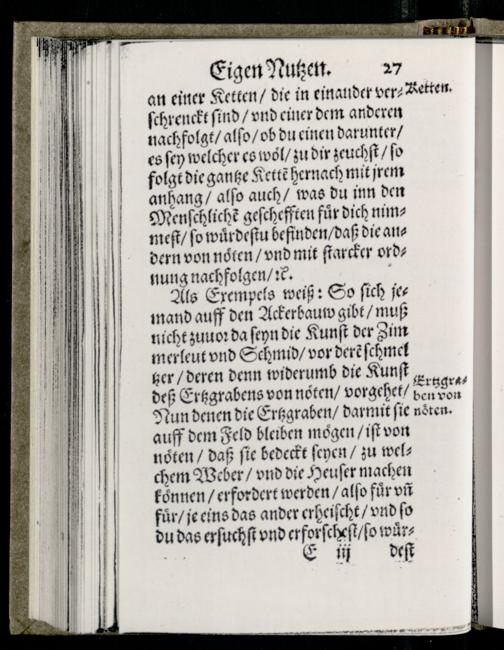 Eigen Nutzen. 27
an einer Ketten / die in einander ver⸗
Ketten.
schrenckt sind / vnd einer dem anderen
nachfolgt / also / ob du einen darunter /
es sey welcher es wöl / zu dir zeuchst / so
folgt die gantze Kettẽ hernach mit jrem
anhang / also auch / was du inn den
Menschlichẽ geschefften für dich nim⸗
mest / so würdestu befinden / daß die an⸗
dern von nöten / vnd mit starcker ord⸗
nung nachfolgen / ꝛc.
Als Exempels weiß: So sich je⸗
mand auff den Ackerbauw gibt / muß
nicht zuuor da seyn die Kunst der Zim
merleut vnd Schmid / vor derẽ schmel
tzer / deren denn widerumb die Kunst
deß Ertzgrabens von nöten / vorgehet /
Ertzgra⸗
ben von
nöten.
Nun denen die Ertzgraben / darmit sie
auff dem Feld bleiben mögen / ist von
nöten / daß sie bedeckt seyen / zu wel⸗
chem Weber / vnd die Heuser machen
können / erfordert werden / also für vñ
für / je eins das ander erheischt / vnd so
du das ersuchst vnd erforschest / so wür⸗
E iij dest